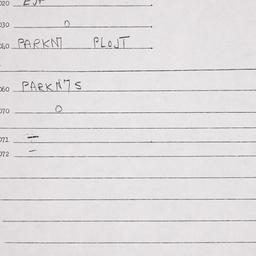 020 EJA
030 0
040 PARKM PLOJT
060 PARKM7S
070 0
071 -
072 -